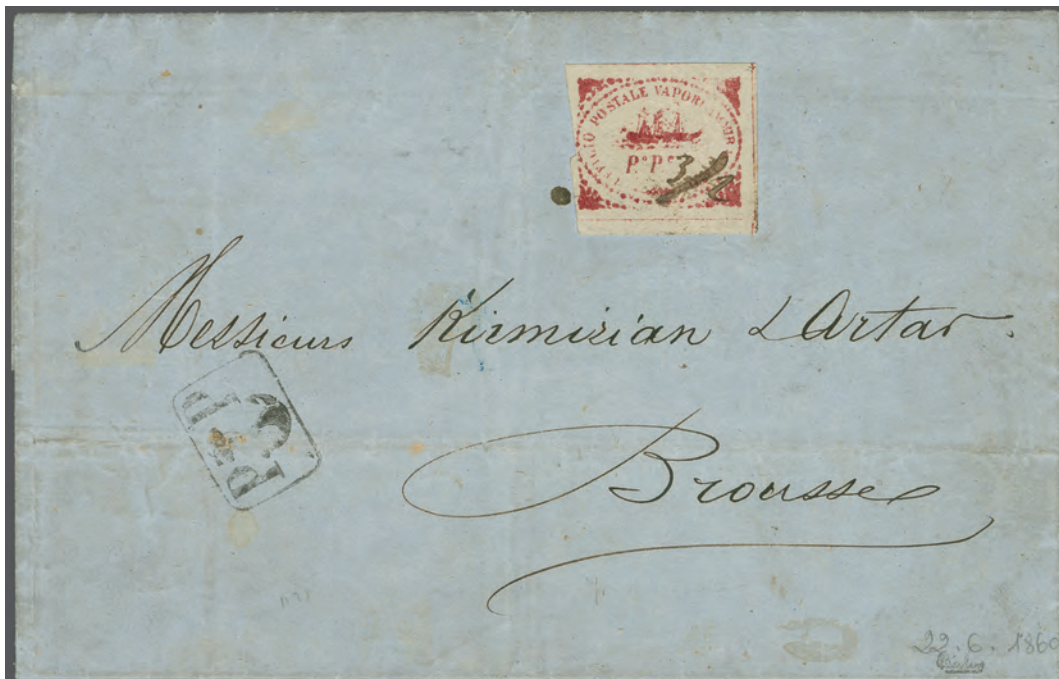 UFFICIO POSTALE VAPORI
P° P°
3 1/2
Messieurs Kirmizian & Artar.
P.P
Brousse
22. 6. 1860